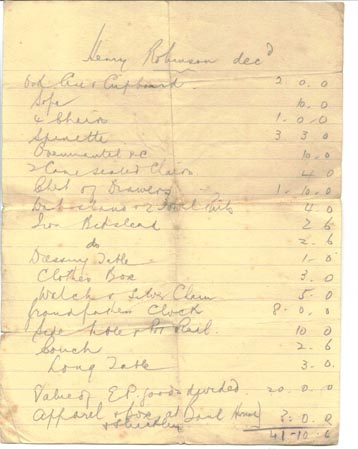 Henry Robinson decd
Oak Case & Cupboard 2. 0. 0
Sofa 10. 0
4 Chairs 1. 0. 0
Spinette 3 3 0
Overmantel &c 10. 0
2 Cane seated Chairs 4 0
Chest of Drawers 1. 10. 0
& 2 4. 0
Iron Bedstead 2 6
do 2. 6
Dressing Table 1. 0
Clothes Box 3. 0
Watch & Silver Chain 5. 0
Grandfathers Clock 8. 0. 0
Side Table & 10 0
Couch 2. 6
Long Table 3. 0
Value of E.P. goods divided 20. 0. 0
Apparel & box at House 2. 0. 0
41-10. 6